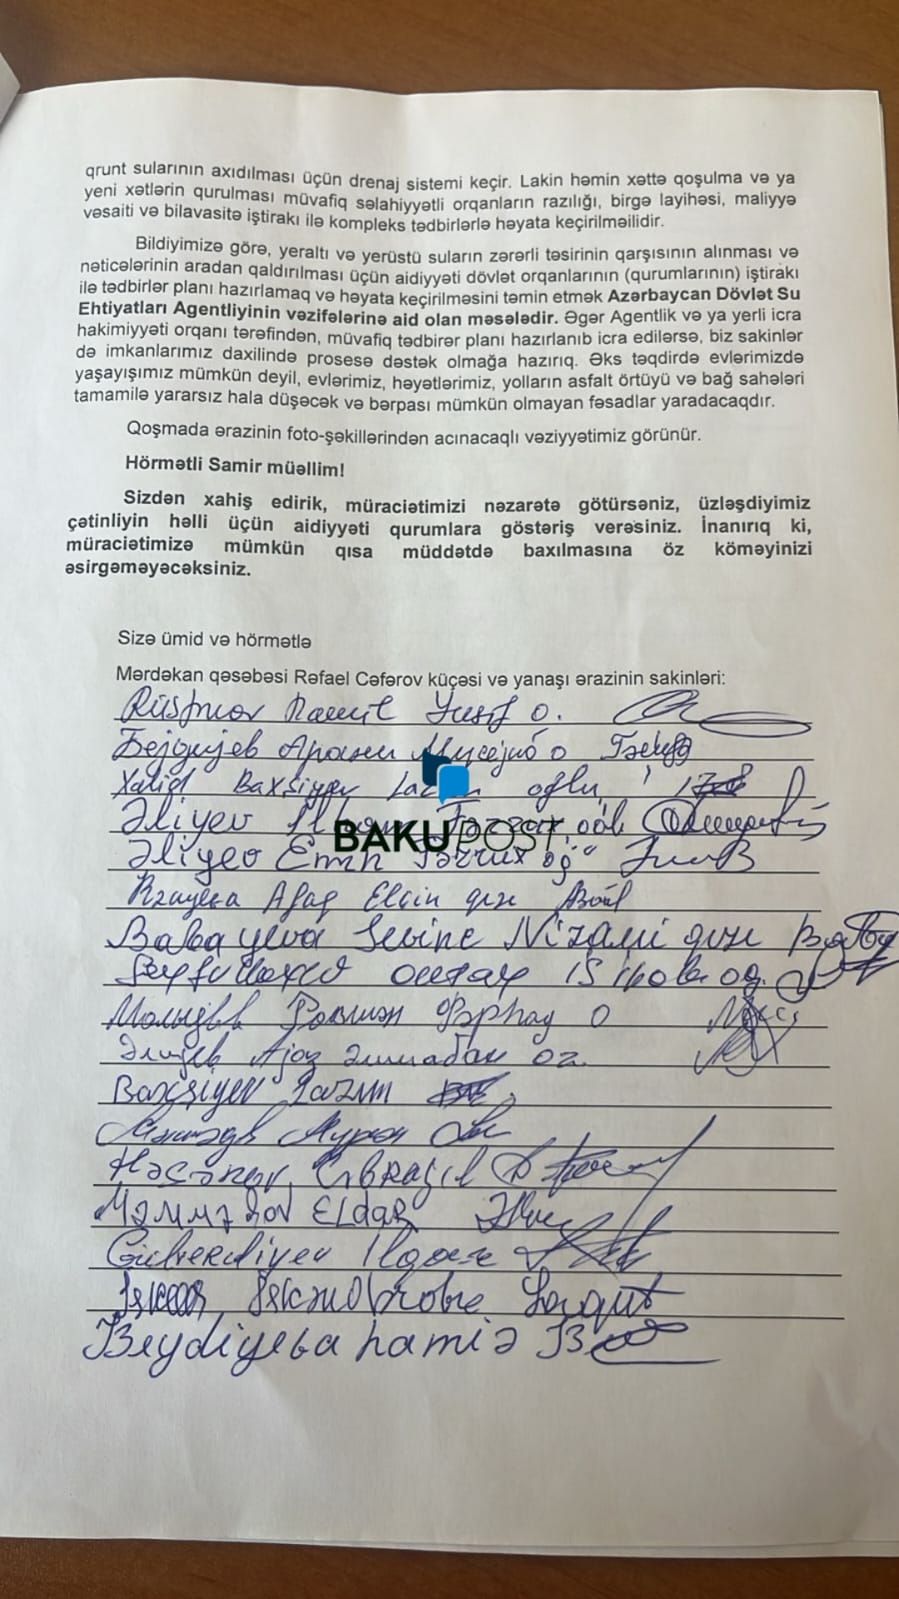 qrunt sularının axıdılması üçün drenaj sistemi keçir. Lakin həmin xəttə qoşulma və ya
yeni xətlərin qurulması müvafiq səlahiyyətli orqanların razılığı, birgə layihəsi, maliyyə
vəsaiti və bilavasitə iştirakı ilə kompleks tədbirlərlə həyata keçirilməilidir.
Bildiyimizə görə, yeraltı və yerüstü suların zərərli təsirinin qarşısının alınması və
nəticələrinin aradan qaldırılması üçün aidiyyəti dövlət orqanlarının (qurumlarının) iştirakı
ilə tədbirlər planı hazırlamaq və həyata keçirilməsini təmin etmək Azərbaycan Dövlət Su
Ehtiyatları Agentliyinin vəzifələrinə aid olan məsələdir. Əgər Agentlik və ya yerli icra
hakimiyyəti orqanı tərəfindən, müvafiq tədbirər planı hazırlanıb icra edilərsə, biz sakinlər
də imkanlarımız daxilində prosesə dəstək olmağa hazırıq. Əks təqdirdə evlərimizdə
yaşayışımız mümkün deyil, evlərimiz, həyətlərimiz, yolların asfalt örtüyü və bağ sahələri
tamamilə yararsız hala düşəcək və bərpası mümkün olmayan fəsadlar yaradacaqdır.
Qoşmada ərazinin foto-şəkillərindən acınacaqlı vəziyyətimiz görünür.
Hörmətli Samir müəllim!
Sizdən xahiş edirik, müraciətimizi nəzarətə götürsəniz, üzləşdiyimiz
çətinliyin həlli üçün aidiyyəti qurumlara göstəriş verəsiniz. İnanırıq ki,
müraciətimizə mümkün qısa müddətdə baxılmasına öz köməyinizi
əsirgəməyəcəksiniz.
Sizə ümid və hörmətlə
Mərdəkan qəsəbəsi Rəfael Cəfərov küçəsi və yanaşı ərazinin sakinləri:
Yusif o.
Xalid Baxşiyev oğlu
Əliyev
BAKUPOST
Əliyev Emin
Afaq Elçin qızı
Babayeva Sevinc Nizami qızı
Фәрһад О
Baxşiyev Lazım
Həsənov Cəbrayıl
Məmmədov ELdAR
Beydiyeva hamiə